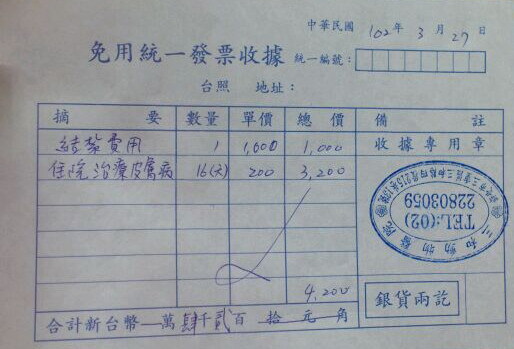 中華民國 102年 3月 27日
免用統一發票收據 統一編號:
台照 地址:
摘要 數量 單價 總價 備註
結紮費用 1 1,000 1,000 收據專用章
住院治療皮膚病 16(天) 200 3,200
TEL:(02)
22803059
4,200
銀貨兩訖
合計新台幣 萬肆千貳百拾元角